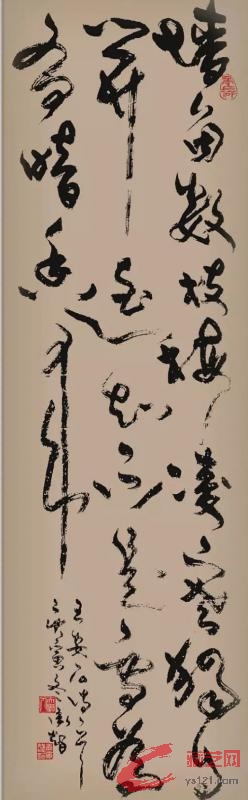 墙角数枝梅凌寒独自
开遥知不是雪为
有暗香来
王安石诗
庚寅冬
ys121.com